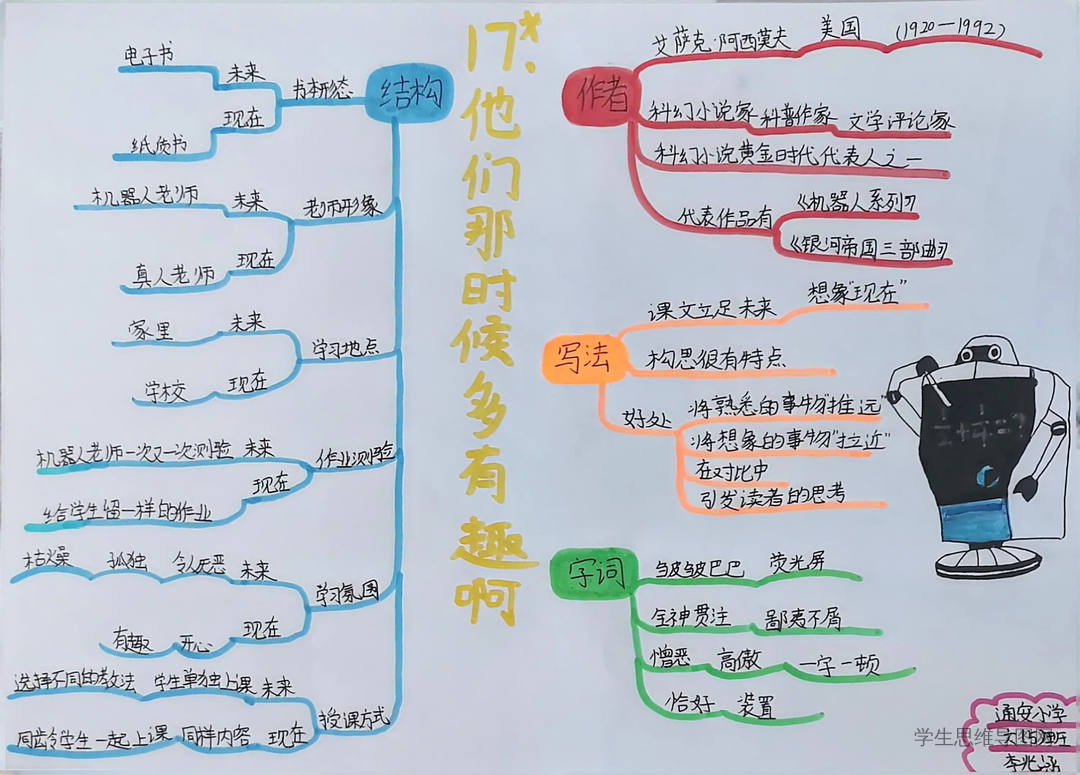 17*、他们那时候多有趣啊
结构
书本形态
未来
电子书
现在
纸质书
老师形象
未来
机器人老师
现在
真人老师
学习地点
未来
家里
现在
学校
作业测验
未来
机器人老师一次又一次测验
现在
给学生留一样的作业
学习氛围
未来
令人厌恶
孤独
枯燥
现在
开心
有趣
授课方式
未来
学生单独上课
选择不同的教法
现在
同样内容
同龄学生一起上课
作者
艾萨克·阿西莫夫 美国 (1920—1992)
科幻小说家 科普作家 文学评论家
科幻小说黄金时代代表人之一
代表作品有
《机器人系列》
《银河帝国三部曲》
写法
课文立足未来 想象"现在"
构思很有特点
好处
将熟悉的事物"推远"
将想象的事物"拉近"
在对比中
引发读者的思考
1/2+1/4=?
字词
皱皱巴巴 荧光屏
全神贯注 鄙夷不屑
憎恶 高傲 一字一顿
恰好 装置
通安小学
学生思维导图